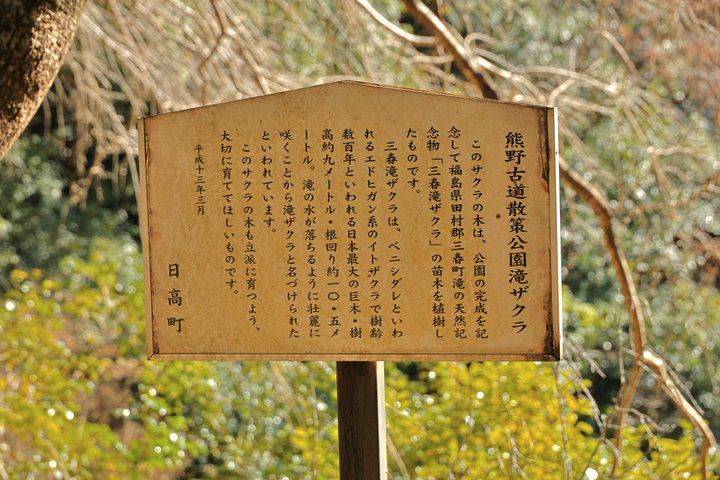 熊野古道散策公園滝ザクラ
このサクラの木は、公園の完成を記
念して福島県田村郡三春町滝の天然記
念物「三春滝ザクラ」の苗木を植樹し
たものです。
三春滝ザクラは、ベニシダレといわ
れるエドヒガン系のイトザクラで樹齢
数百年といわれる日本最大の巨木・樹
高約九メートル・根回り約一〇・五メ
ートル。滝の水が落ちるように壮麗に
咲くことから滝ザクラと名づけられた
といわれています。
このサクラの木も立派に育つよう、
大切に育ててほしいものです。
平成十三年三月
日高町